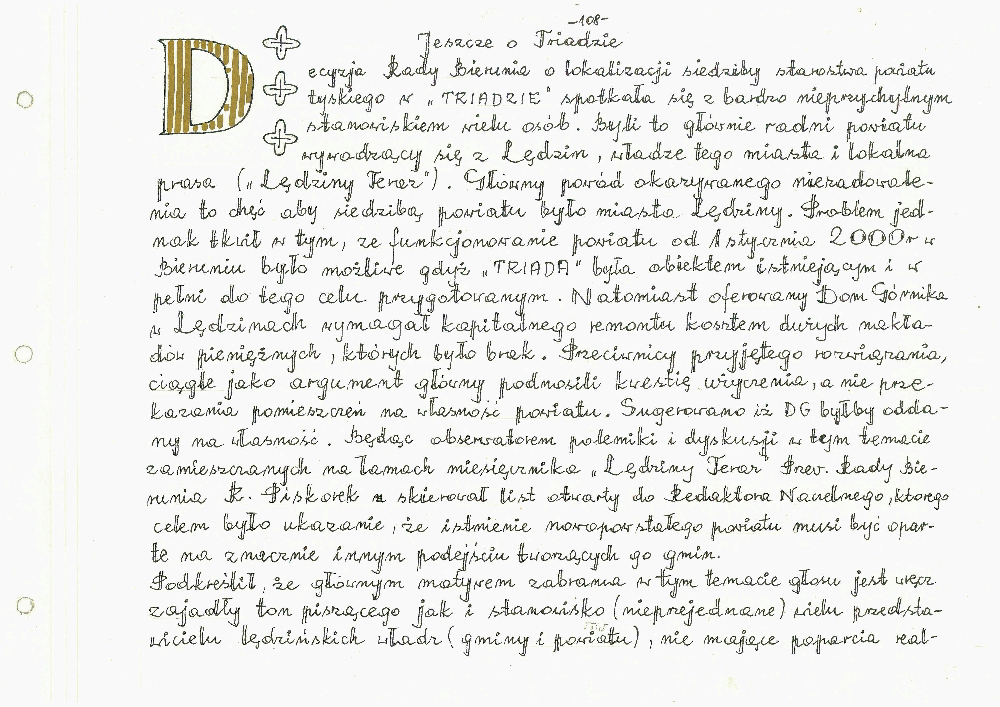 -108-
Jeszcze o Triadzie
Decyzja Rady Bierunia o lokalizacji siedziby starostwa powiatu
tyskiego w „TRIADZIE" spotkała się z bardzo nieprzychylnym
stanowiskiem wielu osób. Byli to głównie radni powiatu
wywodzący się z Lędzin, władze tego miasta i lokalna
prasa („Lędziny Teraz"). Główny powód okazywanego niezadowole-
nia to chęć aby siedzibą powiatu było miasto Lędziny. Problem jed-
nak tkwił w tym, że funkcjonowanie powiatu od 1 stycznia 2000r w
Bieruniu było możliwe gdyż „TRIADA" była obiektem istniejącym i w
pełni do tego celu przygotowanym. Natomiast oferowany Dom Górnika
w Lędzinach wymagał kapitalnego remontu kosztem dużych nakła-
dów pieniężnych, których było brak. Przeciwnicy przyjętego rozwiązania,
ciągle jako argument główny podnosili kwestię użyczenia, a nie prze-
kazania pomieszczeń na własność powiatu. Sugerowano iż DG byłby odda-
ny na własność. Będąc obserwatorem polemiki i dyskusji w tym temacie
zamieszczanych na łamach miesięcznika „Lędziny Teraz" Prew. Rady Bie-
runia R. Piskorek skierował list otwarty do Redaktora Naczelnego, którego
celem było ukazanie, że istnienie nowopowstałego powiatu musi być opar-
te na znacznie innym podejściu tworzących go gmin.
Podkreślił, że głównym motywem zabrania w tym temacie głosu jest wręcz
zajadły ton piszącego jak i stanowisko (nieprzejednane) wielu przedsta-
wicielu lędzińskich władz (gminy i powiatu), nie mające poparcia real-